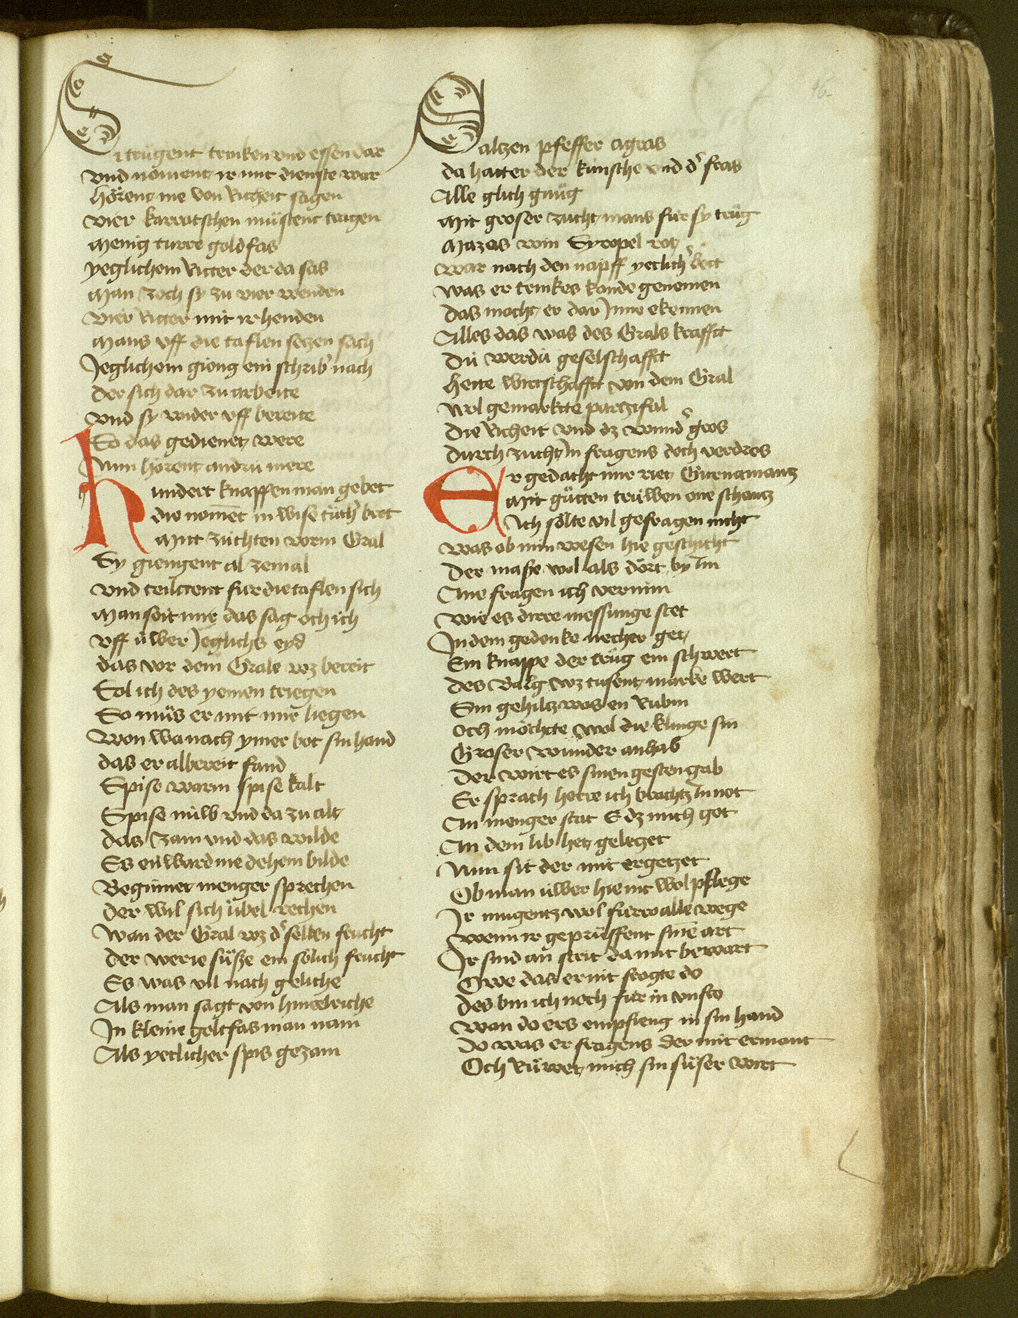 Si trůgent trinken vnd essen dar
vnd noment ir mit dienste war
hörent me von Richeit sagen
vier karratschen müstent tragen
menig turre goldfas
yeglichem Ritter der da sas
Man zoch sy zu vier wenden
vier Ritter mit ir henden
Mans vff die taflen sezen sach
Jeglichem gieng ein schriber nach
der sich dar zu arbeite
vnd sy wider vff bereite
So das gedienet were
Nun hörent andru mere
hundert knappen man gebet
die noment in wise tuͤcher brot
Mitt züchten vorm Gral
Sy giengent al zemal
vnd teiltent für die taflen sich
Man seit mir das sag och ich
vff uͥwer Jeglichs eyd
das vor dem Grale wz bereit
Sol ich des yemen triegen
So müs er mit mir liegen
Won wa nach ymer bot sin hand
das er al bereit fand
Spise warm spise kalt
Spise nüw vnd da zu alt
das zam vnd das wilde
Es en ward nie dehem bilde
Beginnet menger sprechen
der wil sich übel rechen
wan der Gral wz d' selten frucht
der werte süsze ein sölich frucht
Es was vil nach geliche
Als man sagt von himelriche
In kleine goltfas man nam
Als yetlicher spis gezam
Saltzen pfeffer agras
da hatter der künsche vnd d' fras
Alle glich gnůg
Mit groser zucht mans für sy trůg
Mazas win Syropel rot
war nach den napff yetlich' bott
was er trinkes konde genemen
das mocht er dar Inne ekennen
Alles das was des Grals krafft
Dü werdü geselschafft
Hette wirtschafft von dem Gral
wol gemarkte parzifal
die Richeit vnd dz wund' gros
durch zucht In fragens doch verdros
Er gedacht mir riet Gurnamantz
Mit gütten trüwen one schantz
Ich sölte vil gefragen nicht
was ob min wesen hie geschicht
der masse wol als dört by Im
Ane fragen ich vernim
wie es dirre messunge stet
In dem gedenke necher get
Ein knappe der trůg ein schwert
des Balg wz tusent marke wert
Sin gehiltz was en Rubin
och möchte wol die klinge sin
Groser wunder anhab
der wirt es sinen gesten gab
Er sprach herre ich brachtz In not
An menger stat E dz mich got
An dem lib hetz geletzet
Nun sit der mit ergetzet
Ob man üwer hie nit wol pflege
Ir mugentz wol fürw alle wege
wenn ir geprüffent sine art
Ir sind an strit da mit bewart
Owe das er nit fragte do
des bin ich noch für in vnfro
wan do ers empfieng in sin hand
do was er fragens der mit ermant
Och rüwet mich sin süser wirt